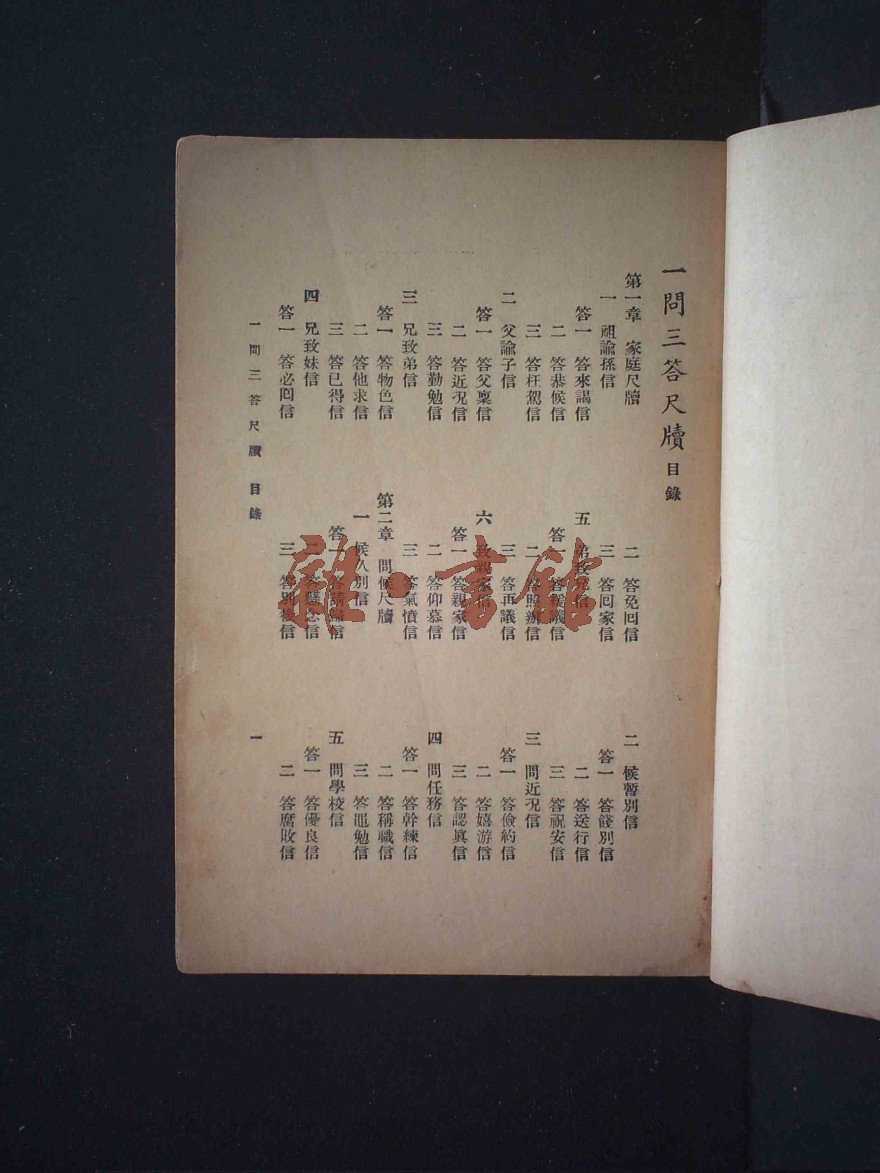 一問三答尺牘目錄
第一章 家庭尺牘
一 祖諭孫信
答一 答來謁信
二 答恭候信
三 答枉駕信
二 父諭子信
答一 答父稟信
二 答近況信
三 答勤勉信
三 兄致弟信
答一 答物色信
二 答他求信
三 答已得信
四 兄致妹信
答一 答必囘信
二 答免囘信
三 答回家信
五 弟致兄信
答一 答緩議信
二 答照辦信
三 答再議信
六 致親家信
答一 答親家信
二 答仰慕信
三 答氣憤信
第二章 問候尺牘
一 候久別信
答一 答請歸信
二 答懸念信
三 答別後信
二 候暫別信
答一 答餞別信
二 答送行信
三 答祝安信
三 問近況信
答一 答儉約信
二 答嬉游信
三 答認眞信
四 問任務信
答一 答幹練信
二 答稱職信
三 答黽勉信
五 問學校信
答一 答優良信
二 答腐敗信
一問三答尺牘 目錄
一
雜·書館